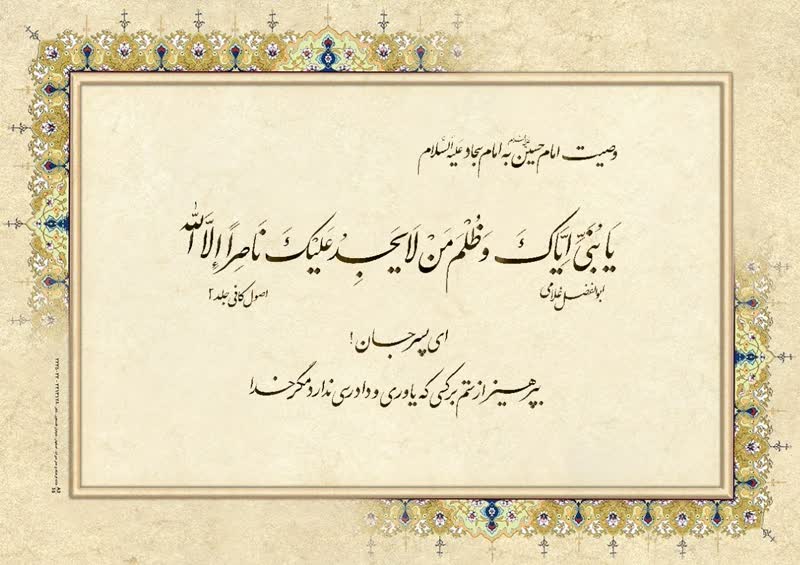 وصیت امام حسین علیه السلام به امام سجاد علیه السلام
یَا بُنَیَّ اِیَّاکَ وَ ظُلْمَ مَنْ لَا یَجِدُ عَلَیْکَ نَاصِراً إِلَّا اللّٰه
ابوالفضل غلامی
اصول کافی جلد ۲
ای پسر جان !
بپرهیز از ستم بر کسی که یاوری و دادرسی ندارد مگر خدا